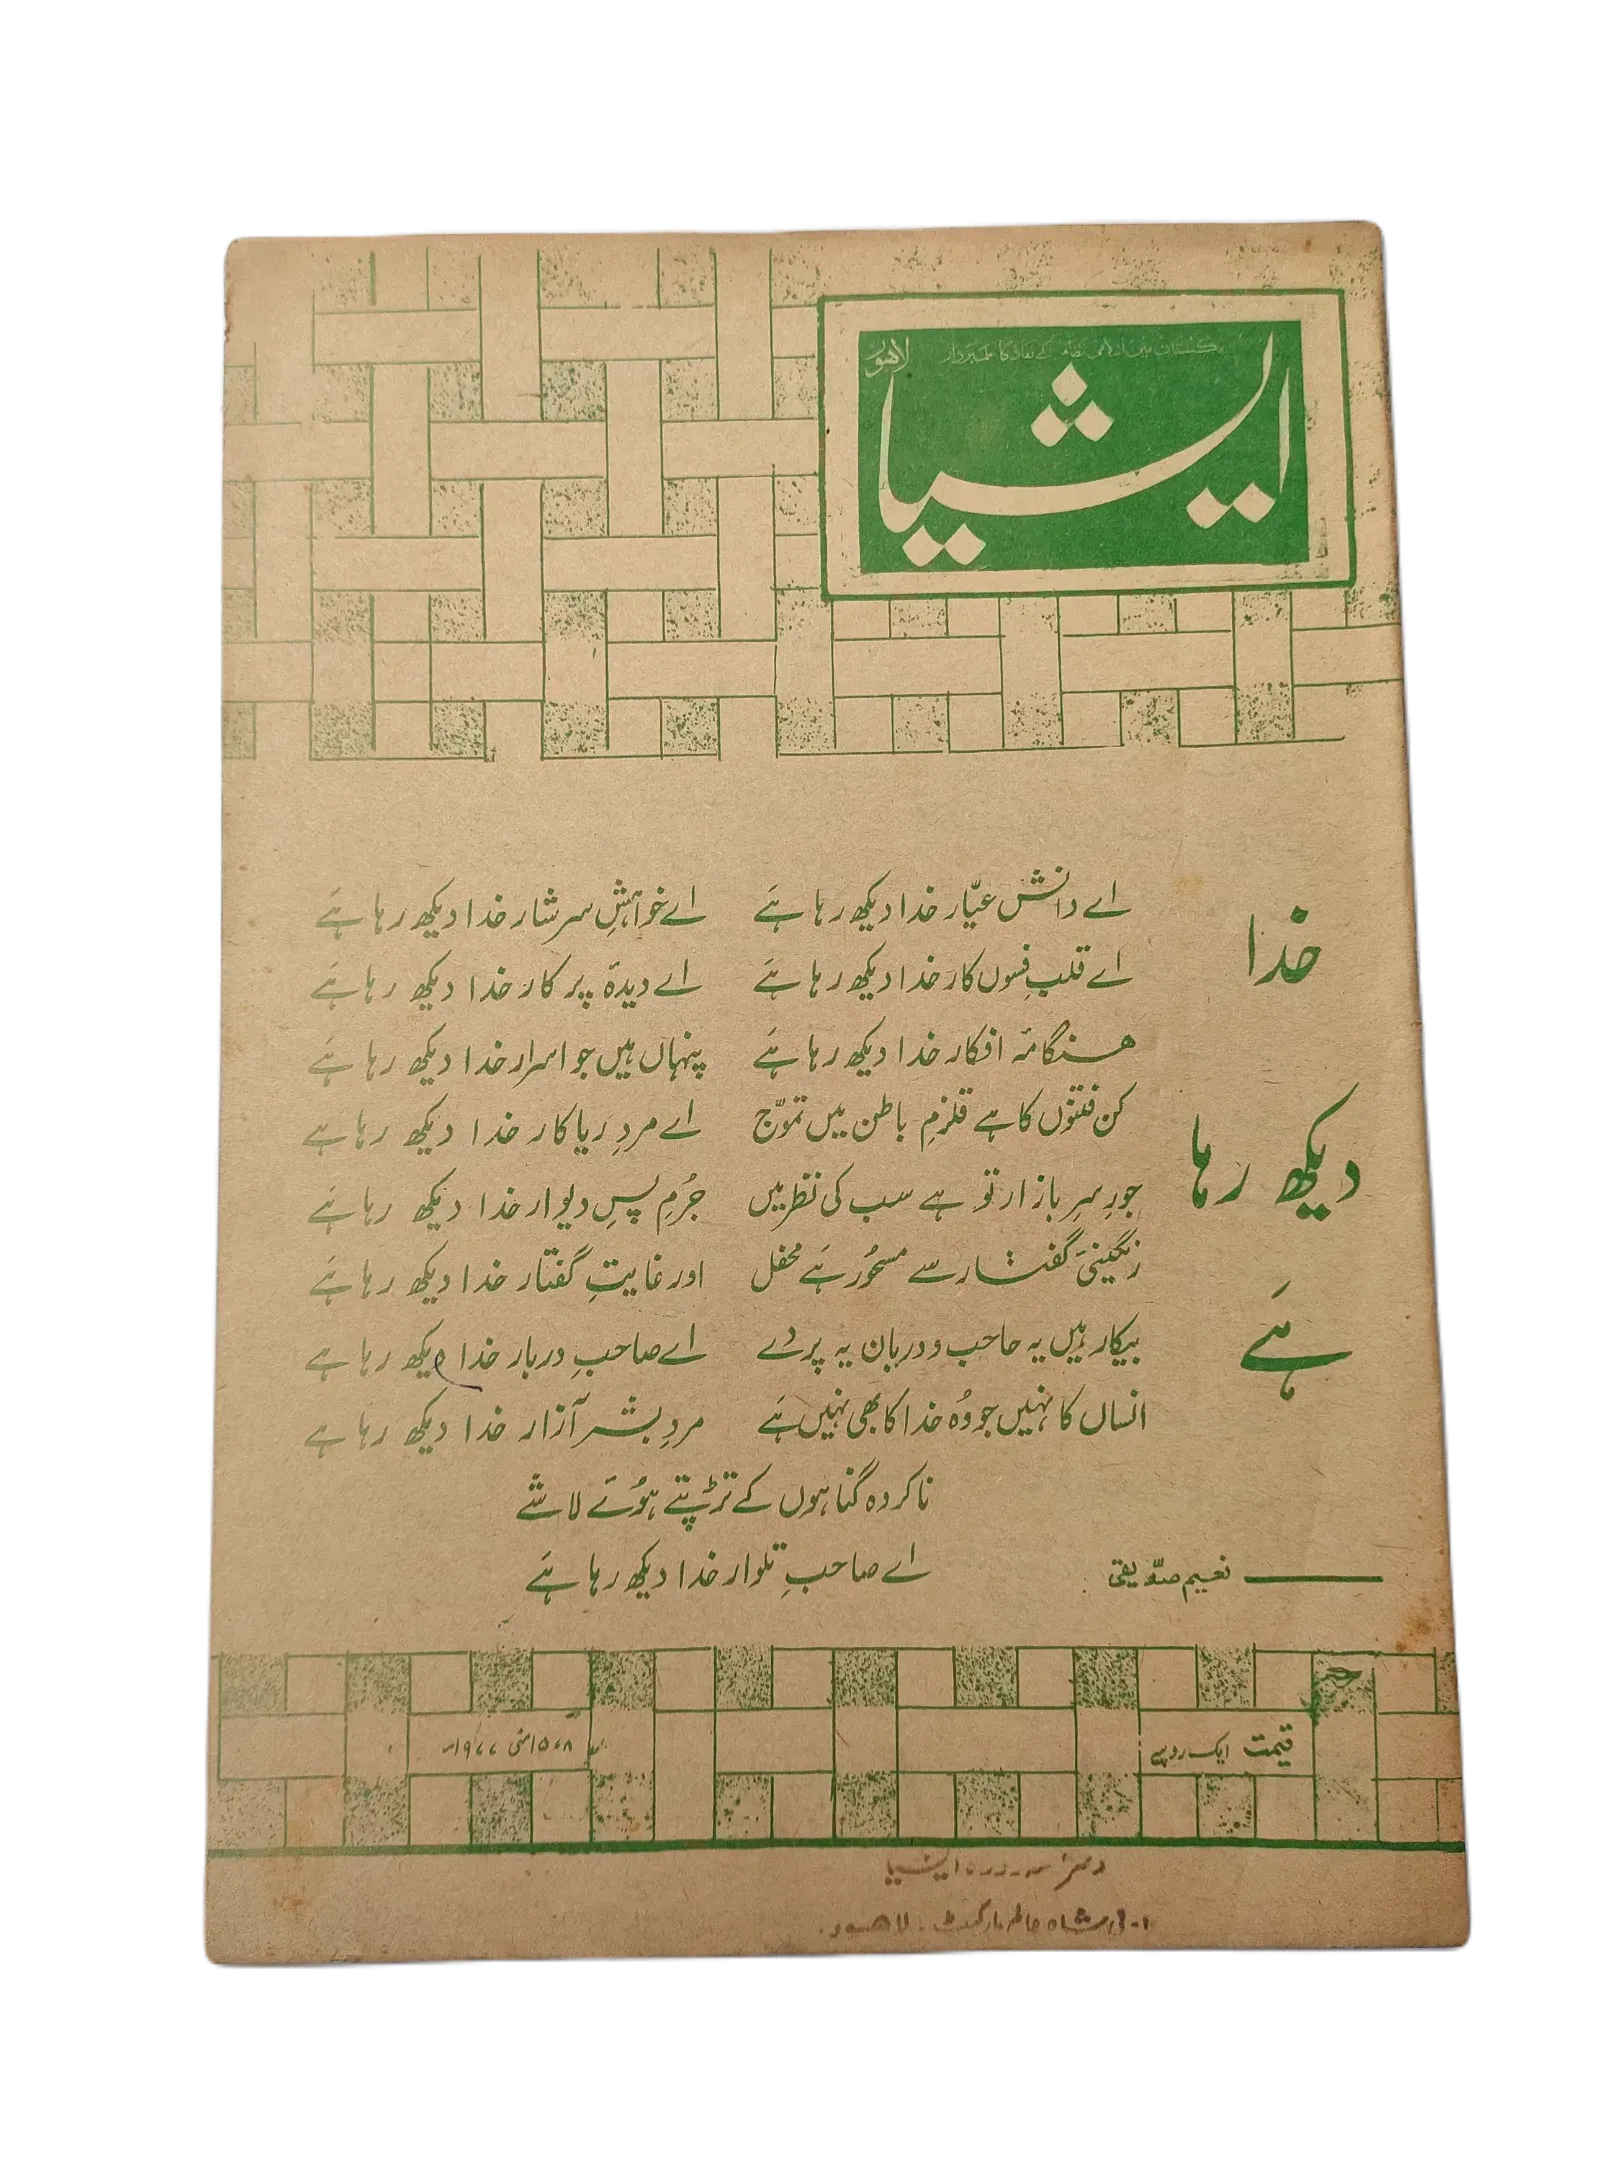 پاکستان میں اسلامی نظام کے نفاذ کا علمبردار
لاہور
ایشیا
خدا
دیکھ رہا
ہَے
اے دانش عیّار خدا دیکھ رہا ہَے اے خواہشِ سرشار خدا دیکھ رہا ہَے
اے قلبِ فسوں کار خدا دیکھ رہا ہَے اے دیدۂ پرکار خدا دیکھ رہا ہَے
ہنگامۂ افکار خدا دیکھ رہا ہَے پنہاں ہیں جو اسرار خدا دیکھ رہا ہَے
کن فتنوں کا ہے قلزمِ باطن میں تموّج اے مردِ ریاکار خدا دیکھ رہا ہے
جورِ سرِ بازار تو ہے سب کی نظر میں جُرمِ پسِ دیوار خدا دیکھ رہا ہَے
رنگینیٔ گفتار سے مسحُور ہَے محفل اور غایتِ گفتار خدا دیکھ رہا ہَے
بیکار ہیں یہ حاجب و دربان یہ پردے اے صاحبِ دربار خدا دیکھ رہا ہے
انساں کا نہیں جو وُہ خدا کا بھی نہیں ہَے مردِ بشر آزار خدا دیکھ رہا ہے
ناکردہ گناہوں کے تڑپتے ہوُئے لاشے
اے صاحبِ تلوار خدا دیکھ رہا ہَے
نعیم صدّیقی
قیمت ایک روپیہ
۸، ۱۵ مئی ۱۹۷۷ء
دفتر سہ روزہ ایشیا
۱- لی شاہ عالم مارکیٹ - لاہور